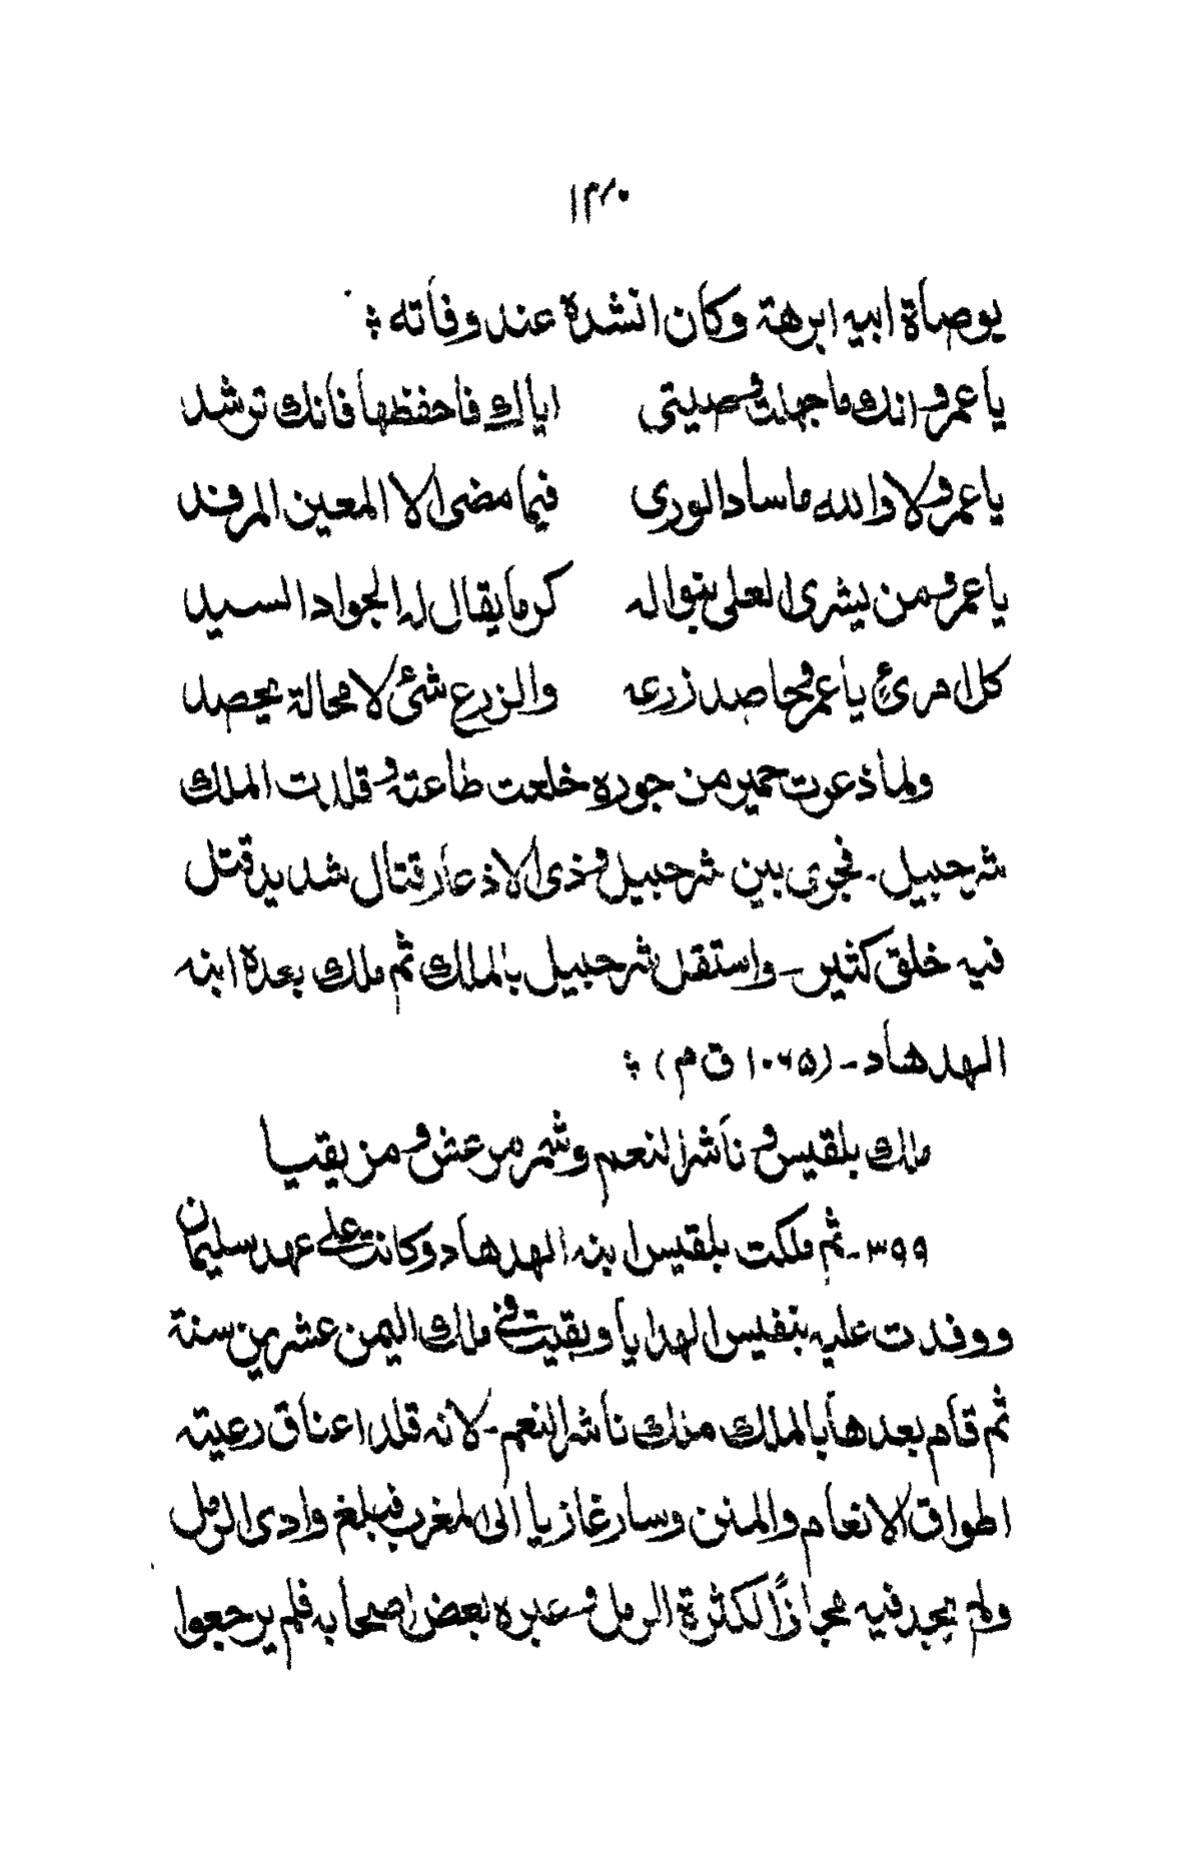 ١٣٠
بوصاة ابيه ابرهة وكان انشده عند وفاته ؞
ياعمرو انك ماجهلت وصيتى اياك فاحفظها فانك ترشد
ياعمرو لا والله ماساد الورى فيما مضى الا المعين المرفد
ياعمرو من يشرى العلى بنواله كرما يقال له الجواد السيد
كل امرئ ياعمرو حاصد زرعه والزرع شئ لا محالة يحصد
ولما ذعرت حمير من جوره خلعت طاعته وقلدت الملك
شرحبيل ـ فجرى بين شرحبيل وذى الاذعار قتال شديد قتل
فيه خلق كثير ـ واستقل شرحبيل بالملك ثم ملك بعده ابنه
الهدهاد ـ (١٠٦٥ ق م) ؞
ملك بلقيس وناشر النعم وشمر مرعش ومن بقيا
٣٩٩ ـ ثم ملكت بلقيس ابنه الهدهاد وكانت على عهد سليمان
ووفدت عليه بنفيس الهدايا وبقيت فى ملك اليمن عشرين سنة
ثم قام بعدها بالملك ملك ناشر النعم ـ لانه قلد اعناق رعيته
اطواق الانعام والمنن وسار غازيا الى المغرب فبلغ وادى الرمل
ولم يجد فيه مجرازًا لكثرة الرمل وعبره بعض اصحابه فلم يرجعوا